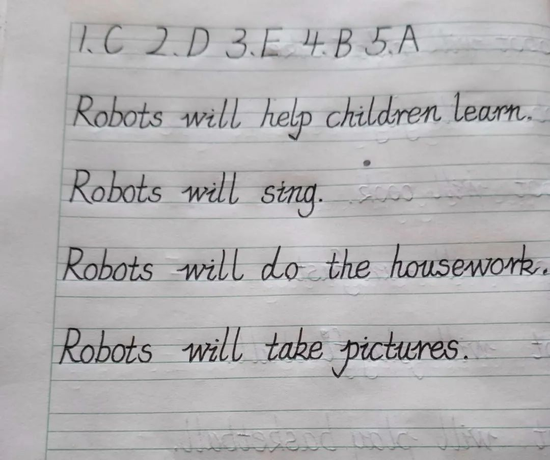 1.C 2.D 3.E 4.B 5.A
Robots will help children learn.
Robots will sing.
Robots will do the housework.
Robots will take pictures.